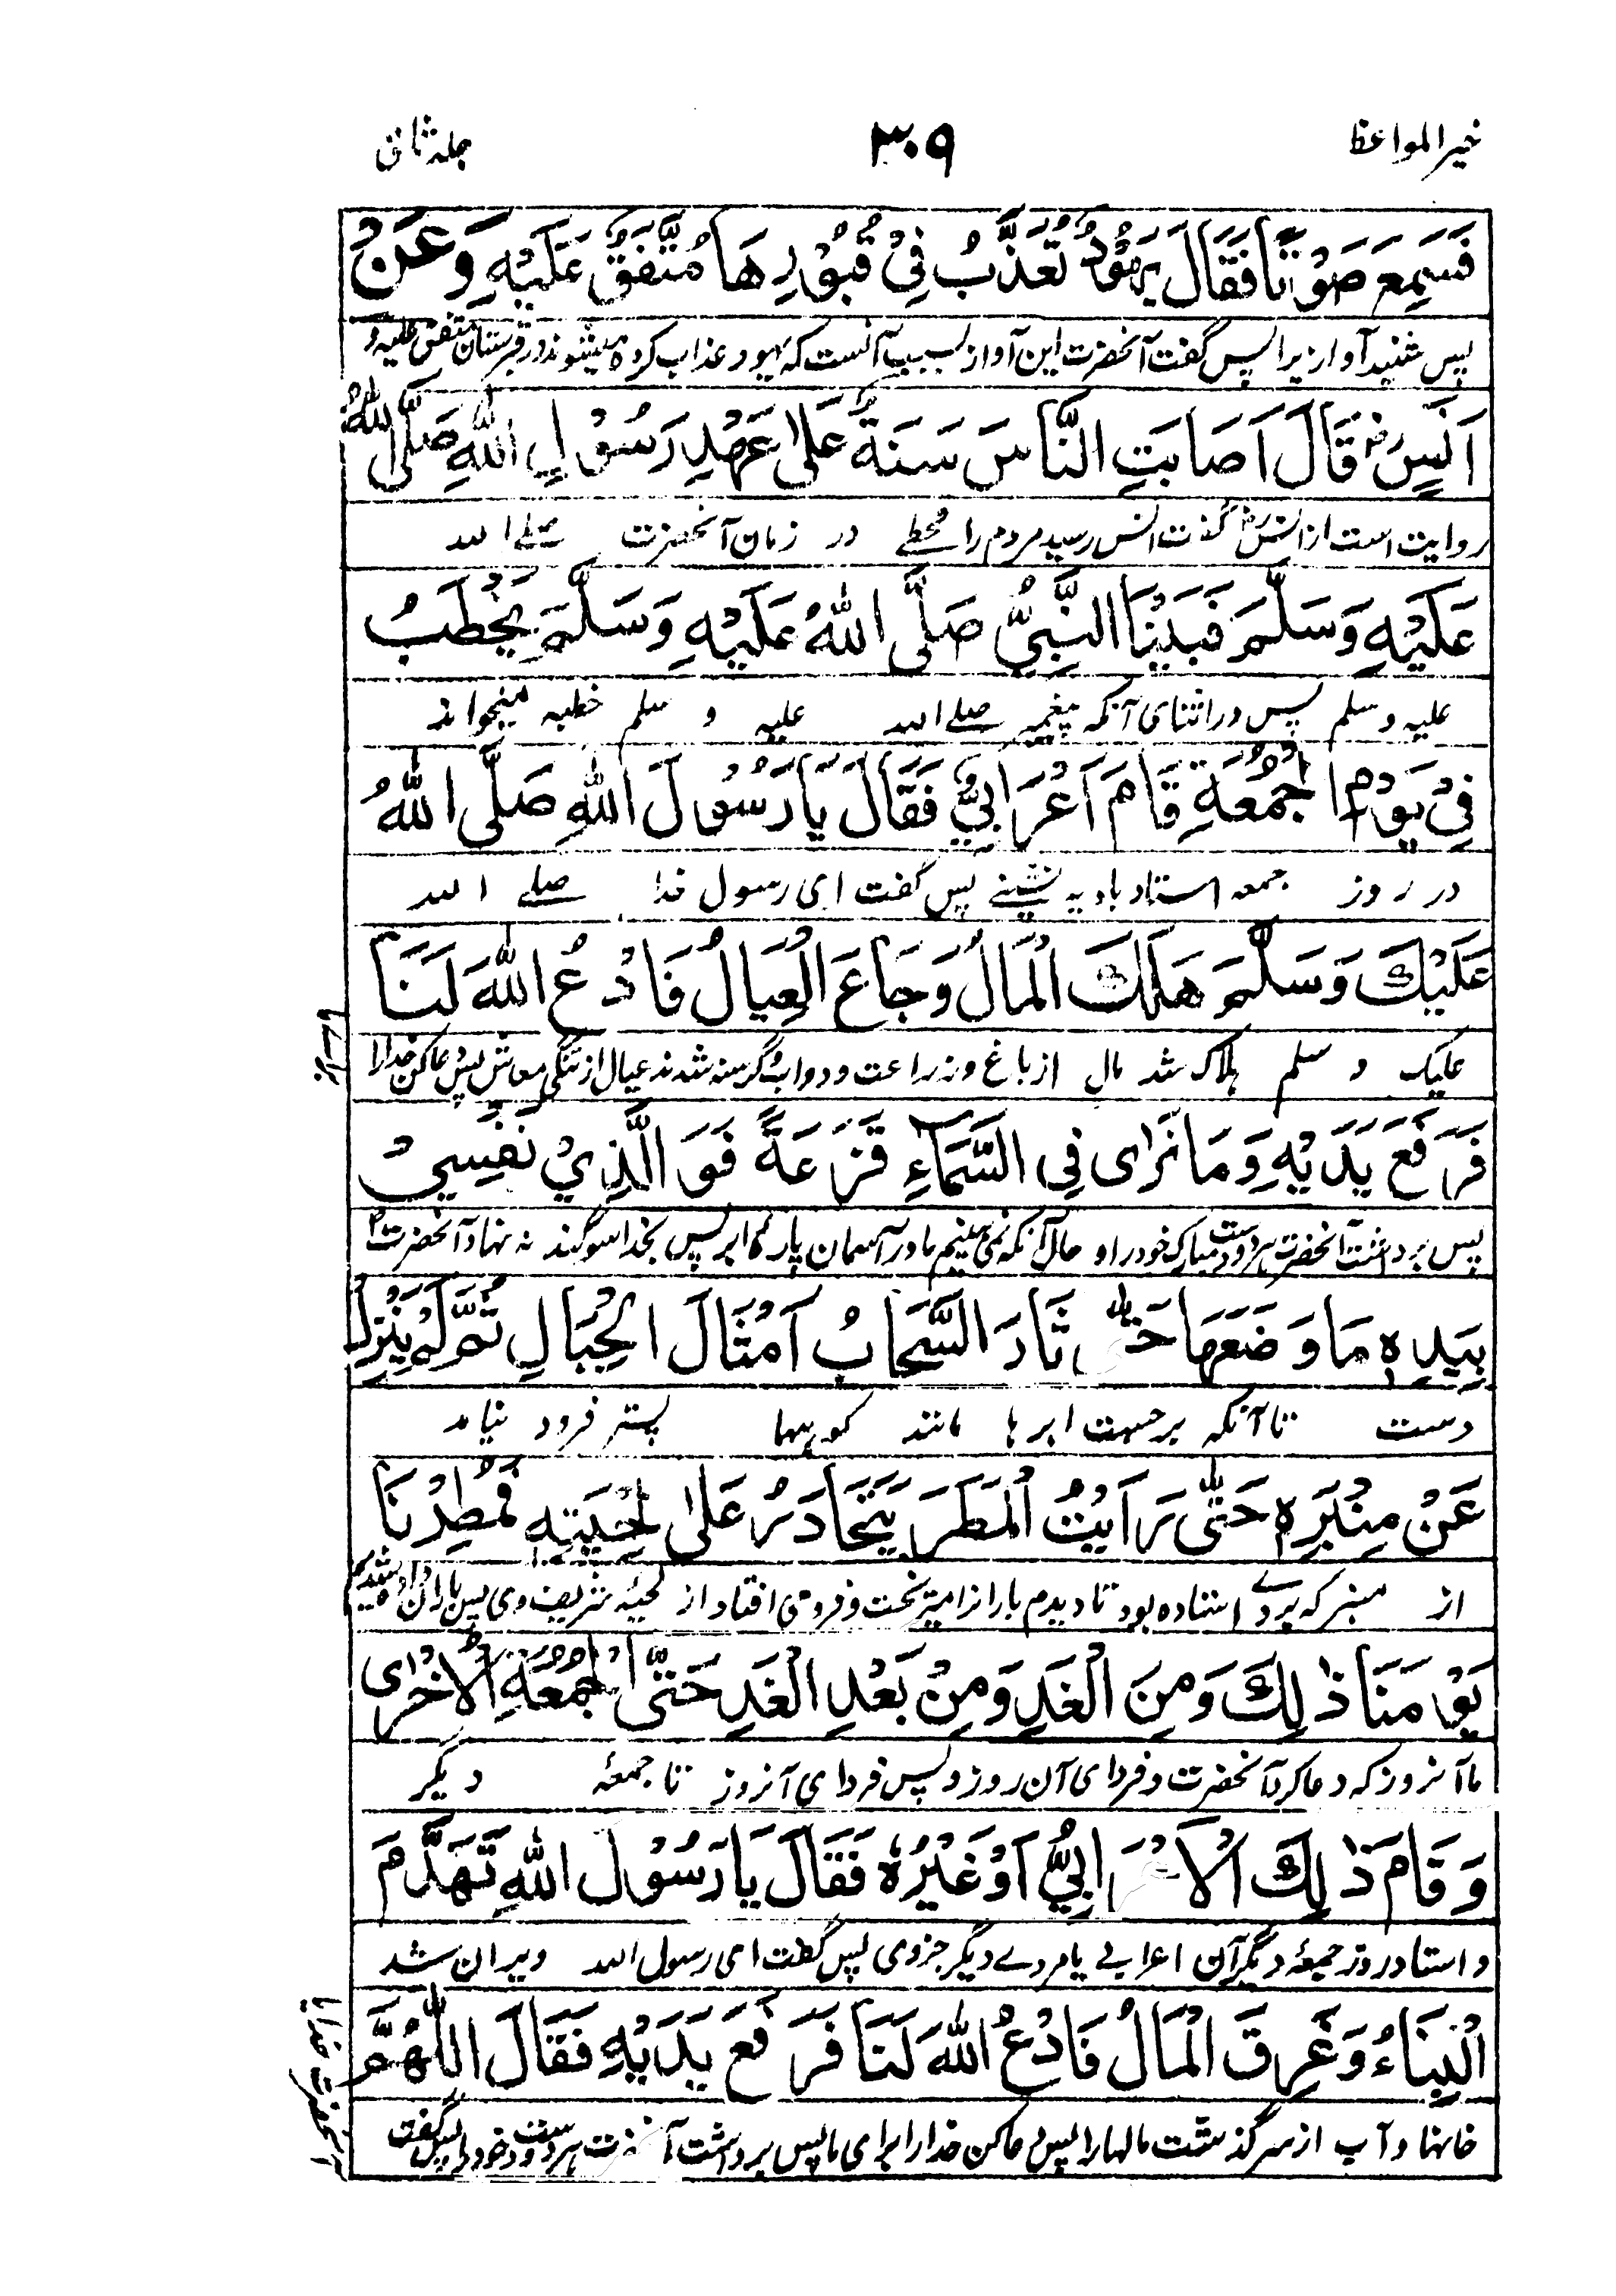 خیر المواعظ ۳۰۹ جلد ثانی
فَسَمِعَ صَوْتًا فَقَالَ يَهُوْدُ تُعَذَّبُ فِيْ قُبُوْرِهَا مُتَّفَقٌ عَلَيْهِ وَعَنْ
پس شنید آوازیرا پس گفت آنحضرت این آواز بسبب آنست که یهود عذاب کرده میشوند در قبرستان متفق علیه و
اَنَسٍ رض قَالَ اَصَابَتِ النَّاسَ سَنَةٌ عَلٰى عَهْدِ رَسُوْلِ اللّٰهِ صَلَّى اللّٰهُ
روایت است از انس رض گفت انس رسید مردم را قحطے در زمان آنحضرت صلے الله
عَلَيْهِ وَسَلَّمَ فَبَيْنَا النَّبِيُّ صَلَّى اللّٰهُ عَلَيْهِ وَسَلَّمَ يَخْطُبُ
علیه و سلم پس در اثنای آنکه پیغمبر صلے الله علیه و سلم خطبه میخواند
فِيْ يَوْمِ الْجُمُعَةِ قَامَ اَعْرَابِيٌّ فَقَالَ يَا رَسُوْلَ اللّٰهِ صَلَّى اللّٰهُ
در روز جمعه استاد بادیه نشینے پس گفت ای رسول خدا صلے الله
عَلَيْكَ وَسَلَّمَ هَلَكَ الْمَالُ وَجَاعَ الْعِيَالُ فَادْعُ اللّٰهَ لَنَا
علیک و سلم هلاک شد مال از باغ و زراعت و دواب و گرسنه شدند عیال از تنگی معاش پس دعا کن خدارا
برای ما
فَرَفَعَ يَدَيْهِ وَمَا نَرٰى فِى السَّمَآءِ قَزَعَةً فَوَ الَّذِيْ نَفْسِيْ
پس برداشت آنحضرت هر دو دست مبارک خود را و حال آنکه نمی بینیم ما در آسمان پاره ابر پس بخدا سوگند نه نهاد آنحضرت
بِيَدِهٖ مَا وَضَعَهَا حَتّٰى ثَارَ السَّحَابُ اَمْثَالَ الْجِبَالِ ثُمَّ لَمْ يَنْزِلْ
دست تا آنکه برجست ابرها مانند کوهها پستر فرود نیامد
عَنْ مِنْبَرِهٖ حَتّٰى رَاَيْتُ الْمَطَرَ يَتَحَادَرُ عَلٰى لِحْيَتِهٖ فَمُطِرْنَا
از منبر که بردے استاده بود تا دیدم باران را میریخت و فرو می افتاد از لحیۀ شریف وی پس باران داده شدیم
يَوْمَنَا ذٰلِكَ وَمِنَ الْغَدِ وَمِنْ بَعْدِ الْغَدِ حَتّٰى الْجُمُعَةِ الْاُخْرٰى
ما آنروز که دعا کرد آنحضرت و فردای آن روز و پس فردای آنروز تا جمعۀ دیگر
وَقَامَ ذٰلِكَ الْاَعْرَابِيُّ اَوْ غَيْرُهٗ فَقَالَ يَا رَسُوْلَ اللّٰهِ تَهَدَّمَ
و استاد روز جمعۀ دیگر آن اعرابے یا مردے دیگر جزوی پس گفت ای رسول الله ویران شد
الْبِنَاءُ وَغَرِقَ الْمَالُ فَادْعُ اللّٰهَ لَنَا فَرَفَعَ يَدَيْهِ فَقَالَ اَللّٰهُمَّ
خانها و آب از سر گذشت مالها را پس دعا کن خدارا برای ما پس برداشت آنحضرت هر دو دست خود را پس گفت
آنحضرت خدایا